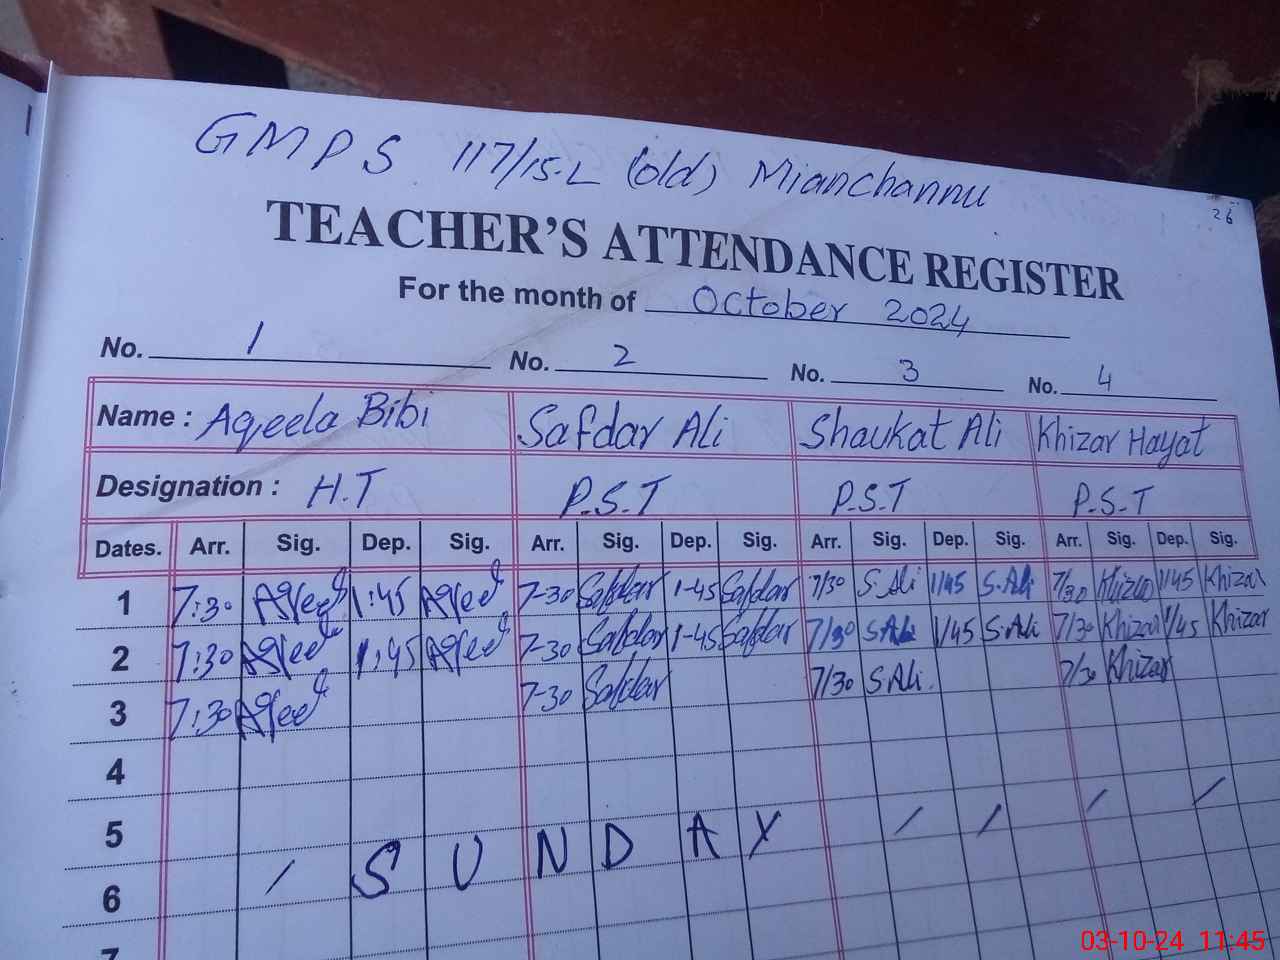 GMPS 117/15-L (old) Mianchannu
26
TEACHER'S ATTENDANCE REGISTER
For the month of October 2024
No. 1 No. 2 No. 3 No. 4
Name : Aqeela Bibi Safdar Ali Shaukat Ali Khizar Hayat
Designation : H.T P.S.T P.S.T P.S.T
Dates. Arr. Sig. Dep. Sig. Arr. Sig. Dep. Sig. Arr. Sig. Dep. Sig. Arr. Sig. Dep. Sig.
1 7:30 1:45 7-30 Safdar 1-45 Safdar 7/30 S.Ali 1/45 S.Ali 7/30 Khizar 1/45 Khizar
2 7:30 1:45 7-30 Safdar 1-45 Safdar 7/30 S.Ali 1/45 S.Ali 7/30 Khizar 1/45 Khizar
3 7:30 7-30 Safdar 7/30 S.Ali. 7/30 Khizar
4
5
6 / SUNDAY / / / /
7
03-10-24 11:45